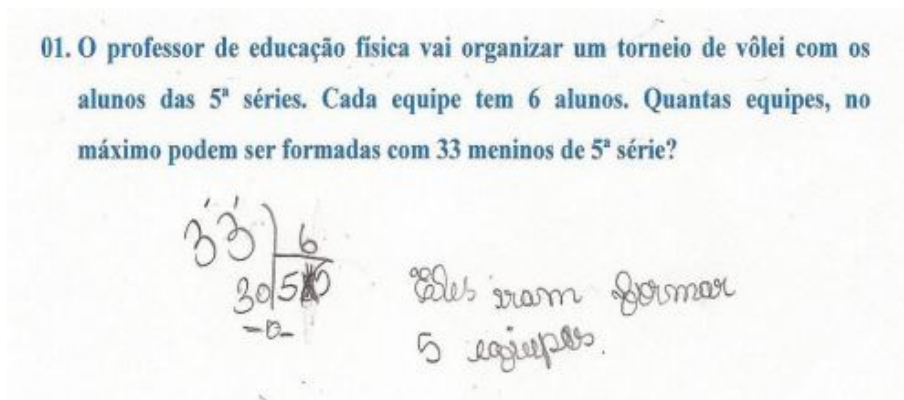 01. O professor de educação física vai organizar um torneio de vôlei com os
alunos das 5ª séries. Cada equipe tem 6 alunos. Quantas equipes, no
máximo podem ser formadas com 33 meninos de 5ª série?
33 6
30 5
-0-
Eles iram formar
5 equipes.